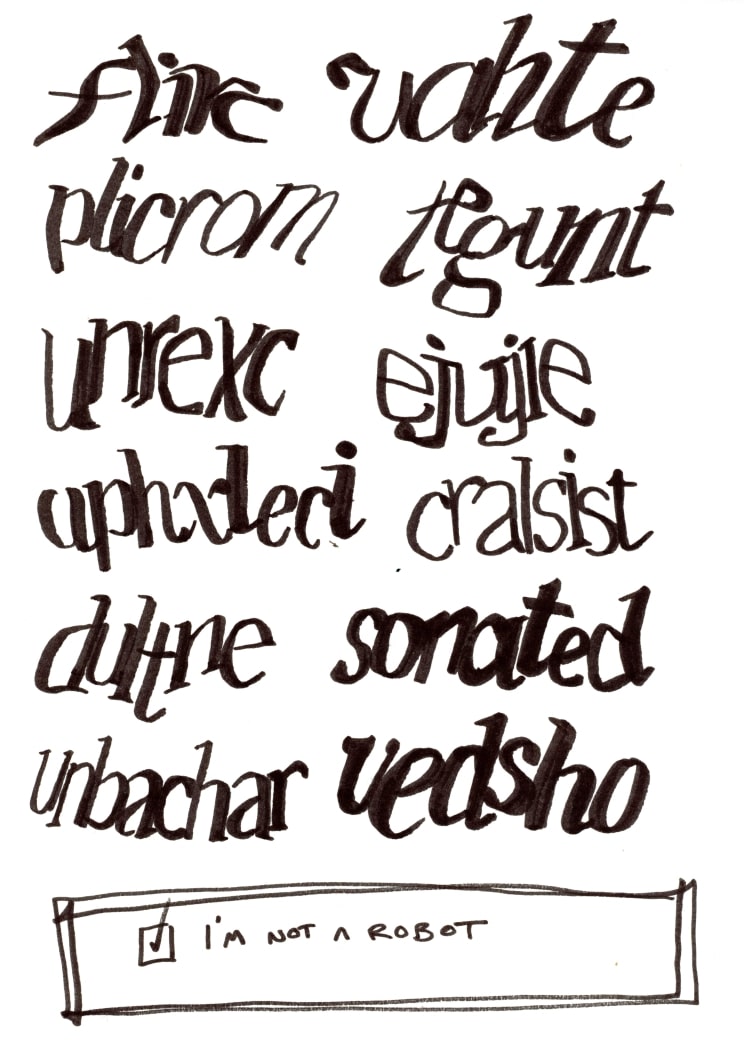 vahte
plicrom tegunt
unrexc ejujie
cralsist
dultne sonated
unbachar vedsho
I'M NOT A ROBOT